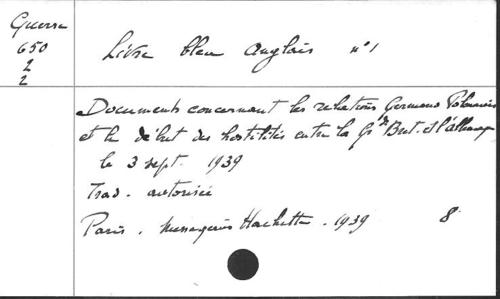 Guerre
650
2
2
Livre bleu anglais n°1
Documents concernant les relations Germano Polonaises
et le début des hostilités entre la Gde Bret. et l'Allemagne
le 3 sept. 1939
Trad. autorisée
Paris. Messageries Hachette. 1939 8°